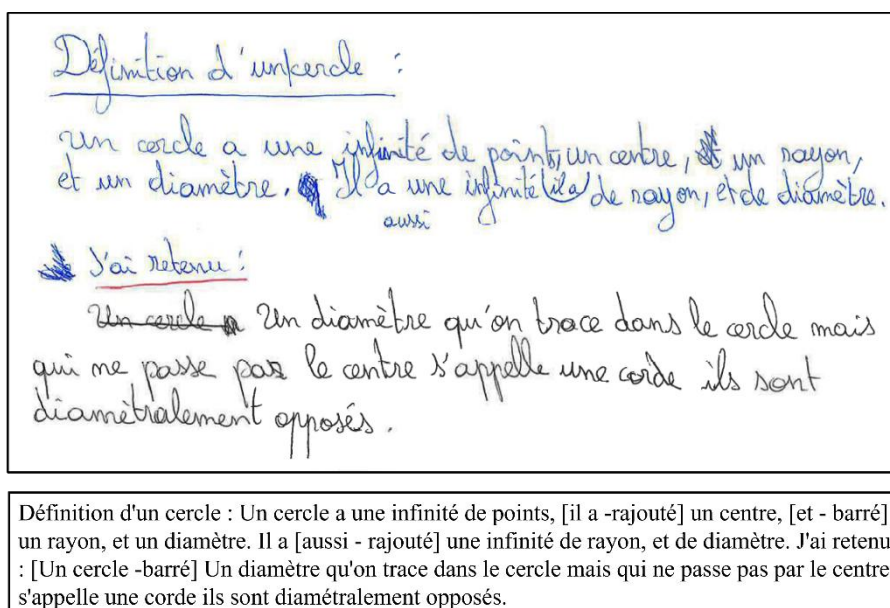 Définition d'un cercle :
Un cercle a une infinité de point, un centre, et un rayon,
et un diamètre. Il a une infinité (il a) de rayon, et de diamètre.
aussi
J'ai retenu :
Un cercle a Un diamètre qu'on trace dans le cercle mais
qui ne passe pas le centre s'appelle une corde ils sont
diamètralement opposés.
Définition d'un cercle : Un cercle a une infinité de points, [il a -rajouté] un centre, [et - barré]
un rayon, et un diamètre. Il a [aussi - rajouté] une infinité de rayon, et de diamètre. J'ai retenu
: [Un cercle -barré] Un diamètre qu'on trace dans le cercle mais qui ne passe pas par le centre
s'appelle une corde ils sont diamétralement opposés.